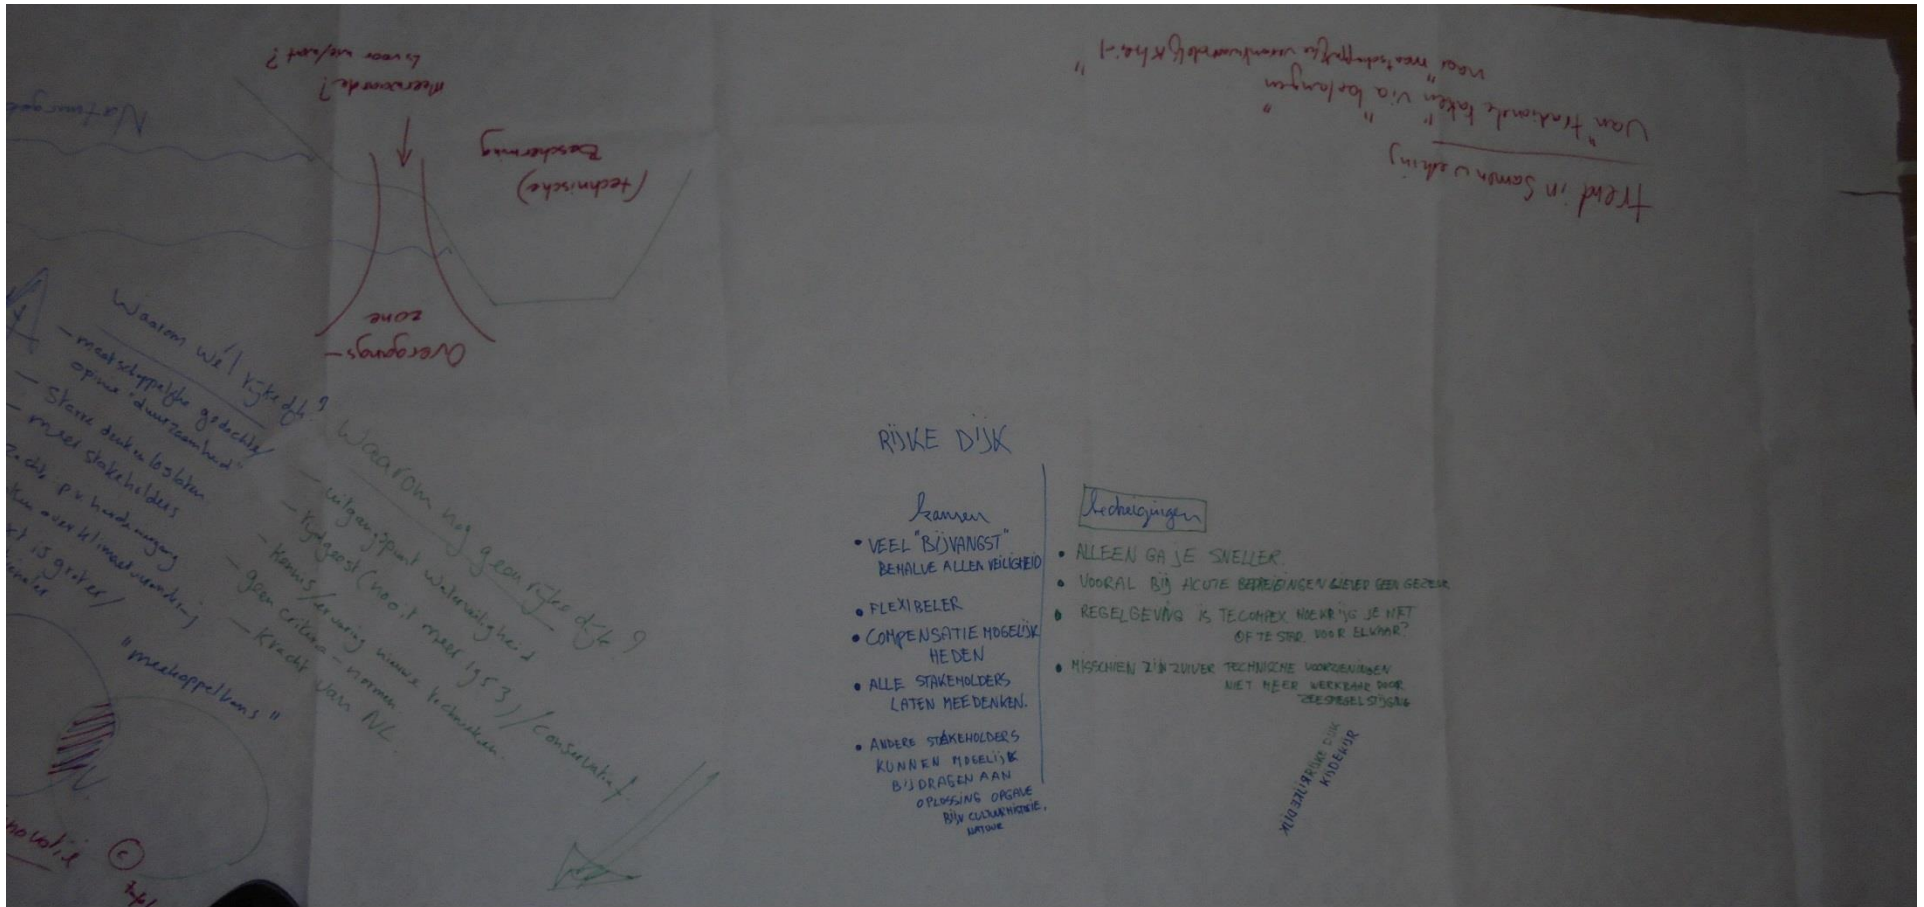 trend in Samenwerking
van "traditionele taken" via "belangen"
naar "maatschappelijke verantwoordelijkheid"
Meerwaarde?
voor wie/wat?
(technische)
Bescherming
Overgangs-
zone
Waarom wél rijke dijk?
- maatschappelijke gedachte/
opinie "duurzaamheid"
- starre denken loslaten
- meer stakeholders
is groter/
"meekoppelkans"
Waarom nog geen rijke dijk?
- uitgangspunt waterveiligheid
- tijdgeest (nooit meer 1953)/conservatief
- kennis/ervaring nieuwe technieken
- geen criteria-normen
- kracht van NL
RIJKE DIJK
kansen
• VEEL "BIJVANGST"
BEHALVE ALLEN VEILIGHEID
• FLEXIBELER
• COMPENSATIE MOGELIJK
HEDEN
• ALLE STAKEHOLDERS
LATEN MEEDENKEN.
• ANDERE STAKEHOLDERS
KUNNEN MOGELIJK
BIJDRAGEN AAN
OPLOSSING OPGAVE
BIJV CULTUURHISTORIE.
NATUUR
bedreigingen
• ALLEEN GA JE SNELLER.
• VOORAL BIJ ACUTE BEDREIGINGEN LIEVER GEEN GEZEUR
• REGELGEVING IS TE COMPEX HOE KRIJG JE HET
OF TE STAR. VOOR ELKAAR?
• MISSCHIEN ZIJN ZUIVER TECHNISCHE VOORZIENINGEN
NIET MEER WERKBAAR DOOR
ZEESPIEGELSTIJGING
RIJKE DIJK
RIJKE DIJK